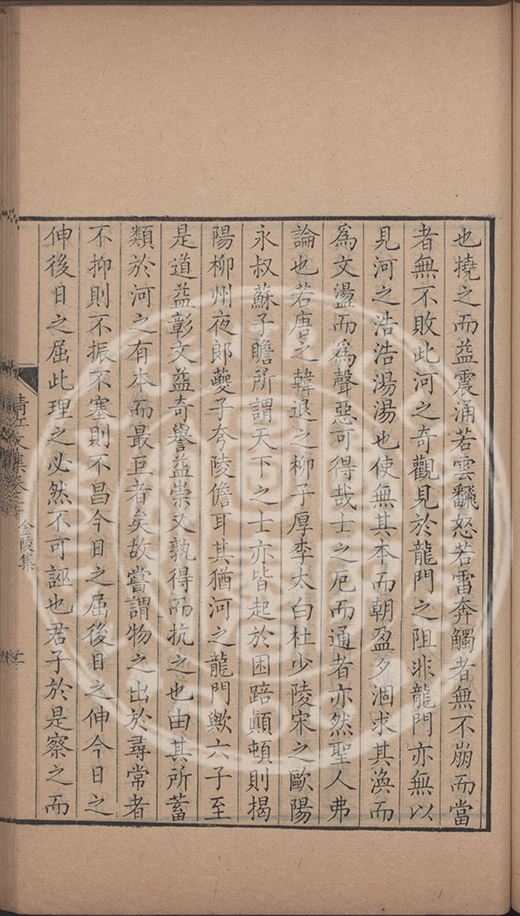 也撓之而益震涌若雲翻怒若雷奔觸者無不崩而當
者無不敗此河之奇觀見於龍門之阻非龍門亦無以
見河之浩浩湯湯也使無其本而朝盈夕涸求其渙而
為文盪而為聲惡可得哉士之厄而通者亦然聖人弗
論也若唐之韓退之柳子厚李太白杜少陵宋之歐陽
永叔蘇子瞻所謂天下之士亦皆起於困踣顛頓則揭
陽柳州夜郎夔子夸陵儋耳其猶河之龍門歟六子至
是道益彰文益奇譽益崇又孰得而抗之也由其所蓄
類於河之有本而最巨者矣故嘗謂物之出於尋常者
不抑則不振不塞則不昌今日之屈後日之伸今日之
伸後日之屈此理之必然不可誣也君子於是察之而
清江文集卷
金陵集